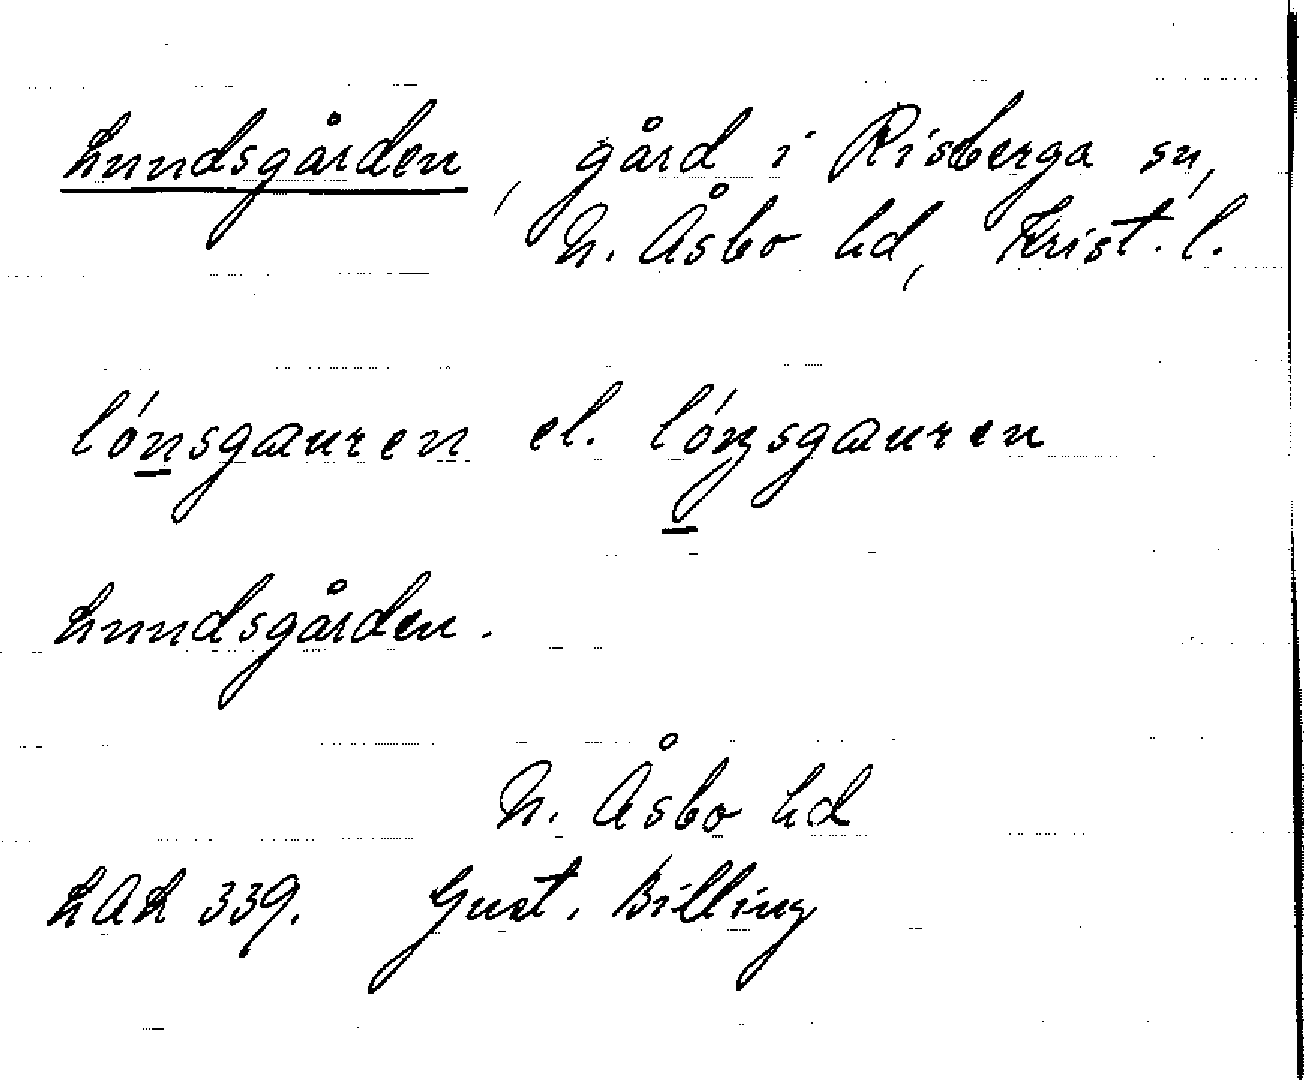 Lundsgården, gård i Risberga sn,
N. Åsbo hd, Krist. l.
lónsgauren el. lóŋsgauren
Lundsgården.
N. Åsbo hd
LAL 339. Gust. Billing